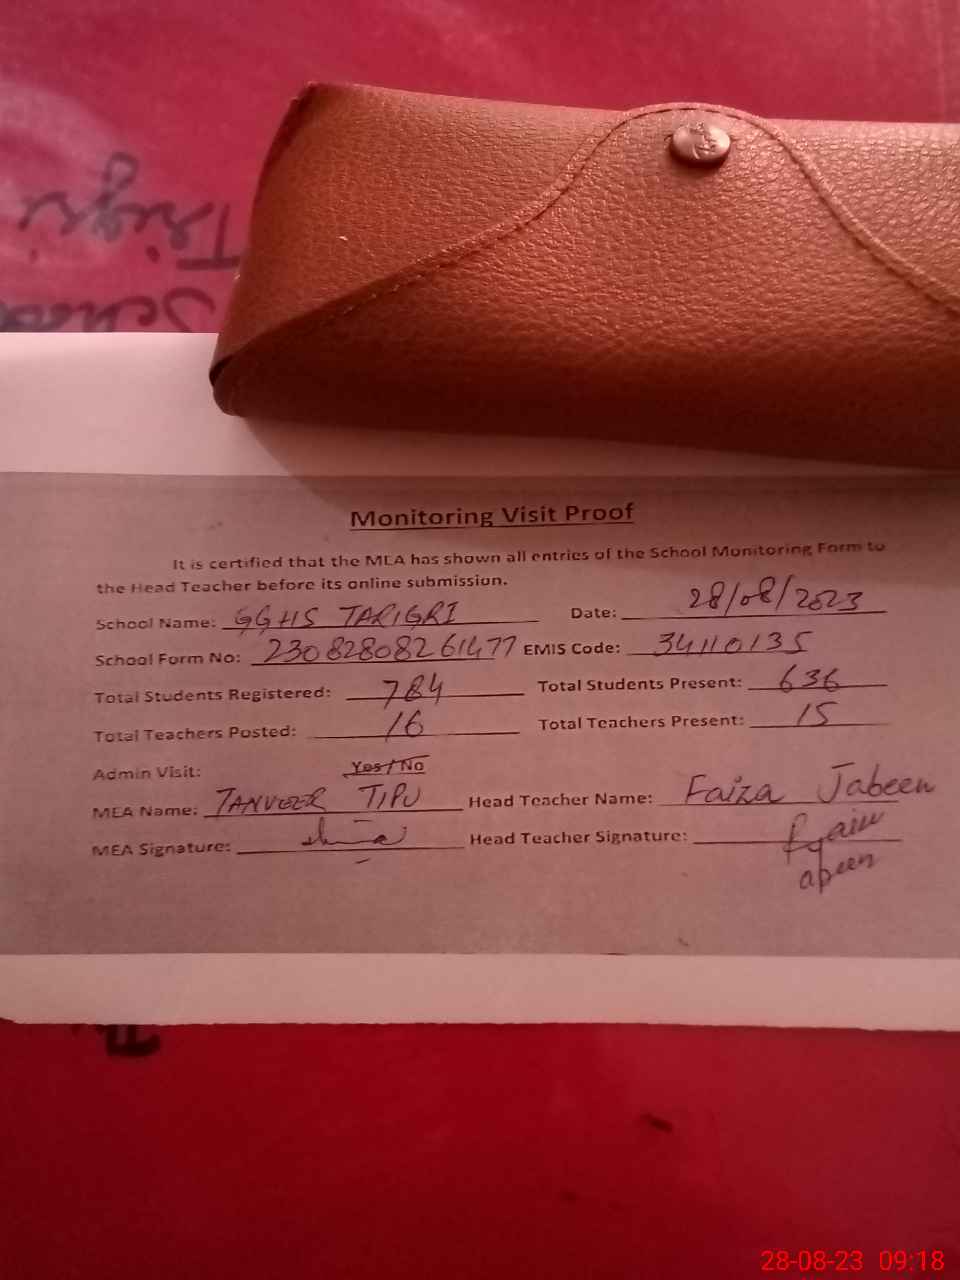 Trigri
School
Monitoring Visit Proof
It is certified that the MEA has shown all entries of the School Monitoring Form to
the Head Teacher before its online submission.
School Name: GGHS TARIGRI Date: 28/08/2023
School Form No: 23082808261477 EMIS Code: 34110135
Total Students Registered: 784 Total Students Present: 636
Total Teachers Posted: 16 Total Teachers Present: 15
Admin Visit: Yes / No
MEA Name: TANVEER TIPU Head Teacher Name: Faiza Jabeen
MEA Signature: Head Teacher Signature:
28-08-23 09:18